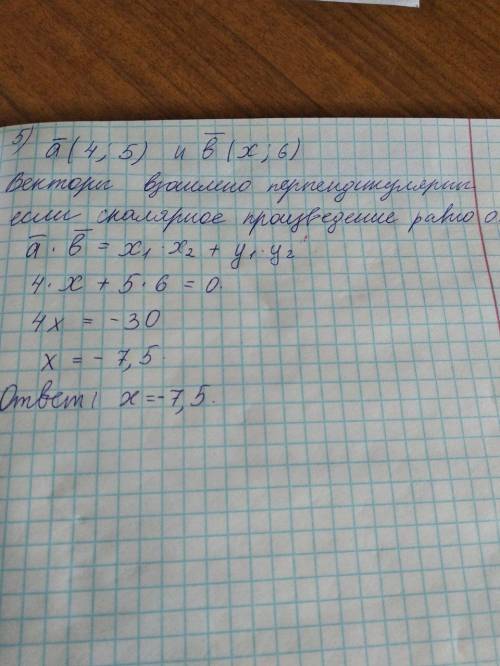 5) a̅ (4; 5) и b̅ (x; 6)
Векторы взаимно перпендикулярны
если скалярное произведение равно 0.
a̅ · b̅ = x₁ · x₂ + y₁ · y₂
4 · x + 5 · 6 = 0.
4x = -30
x = - 7,5.
Ответ: x = -7,5.